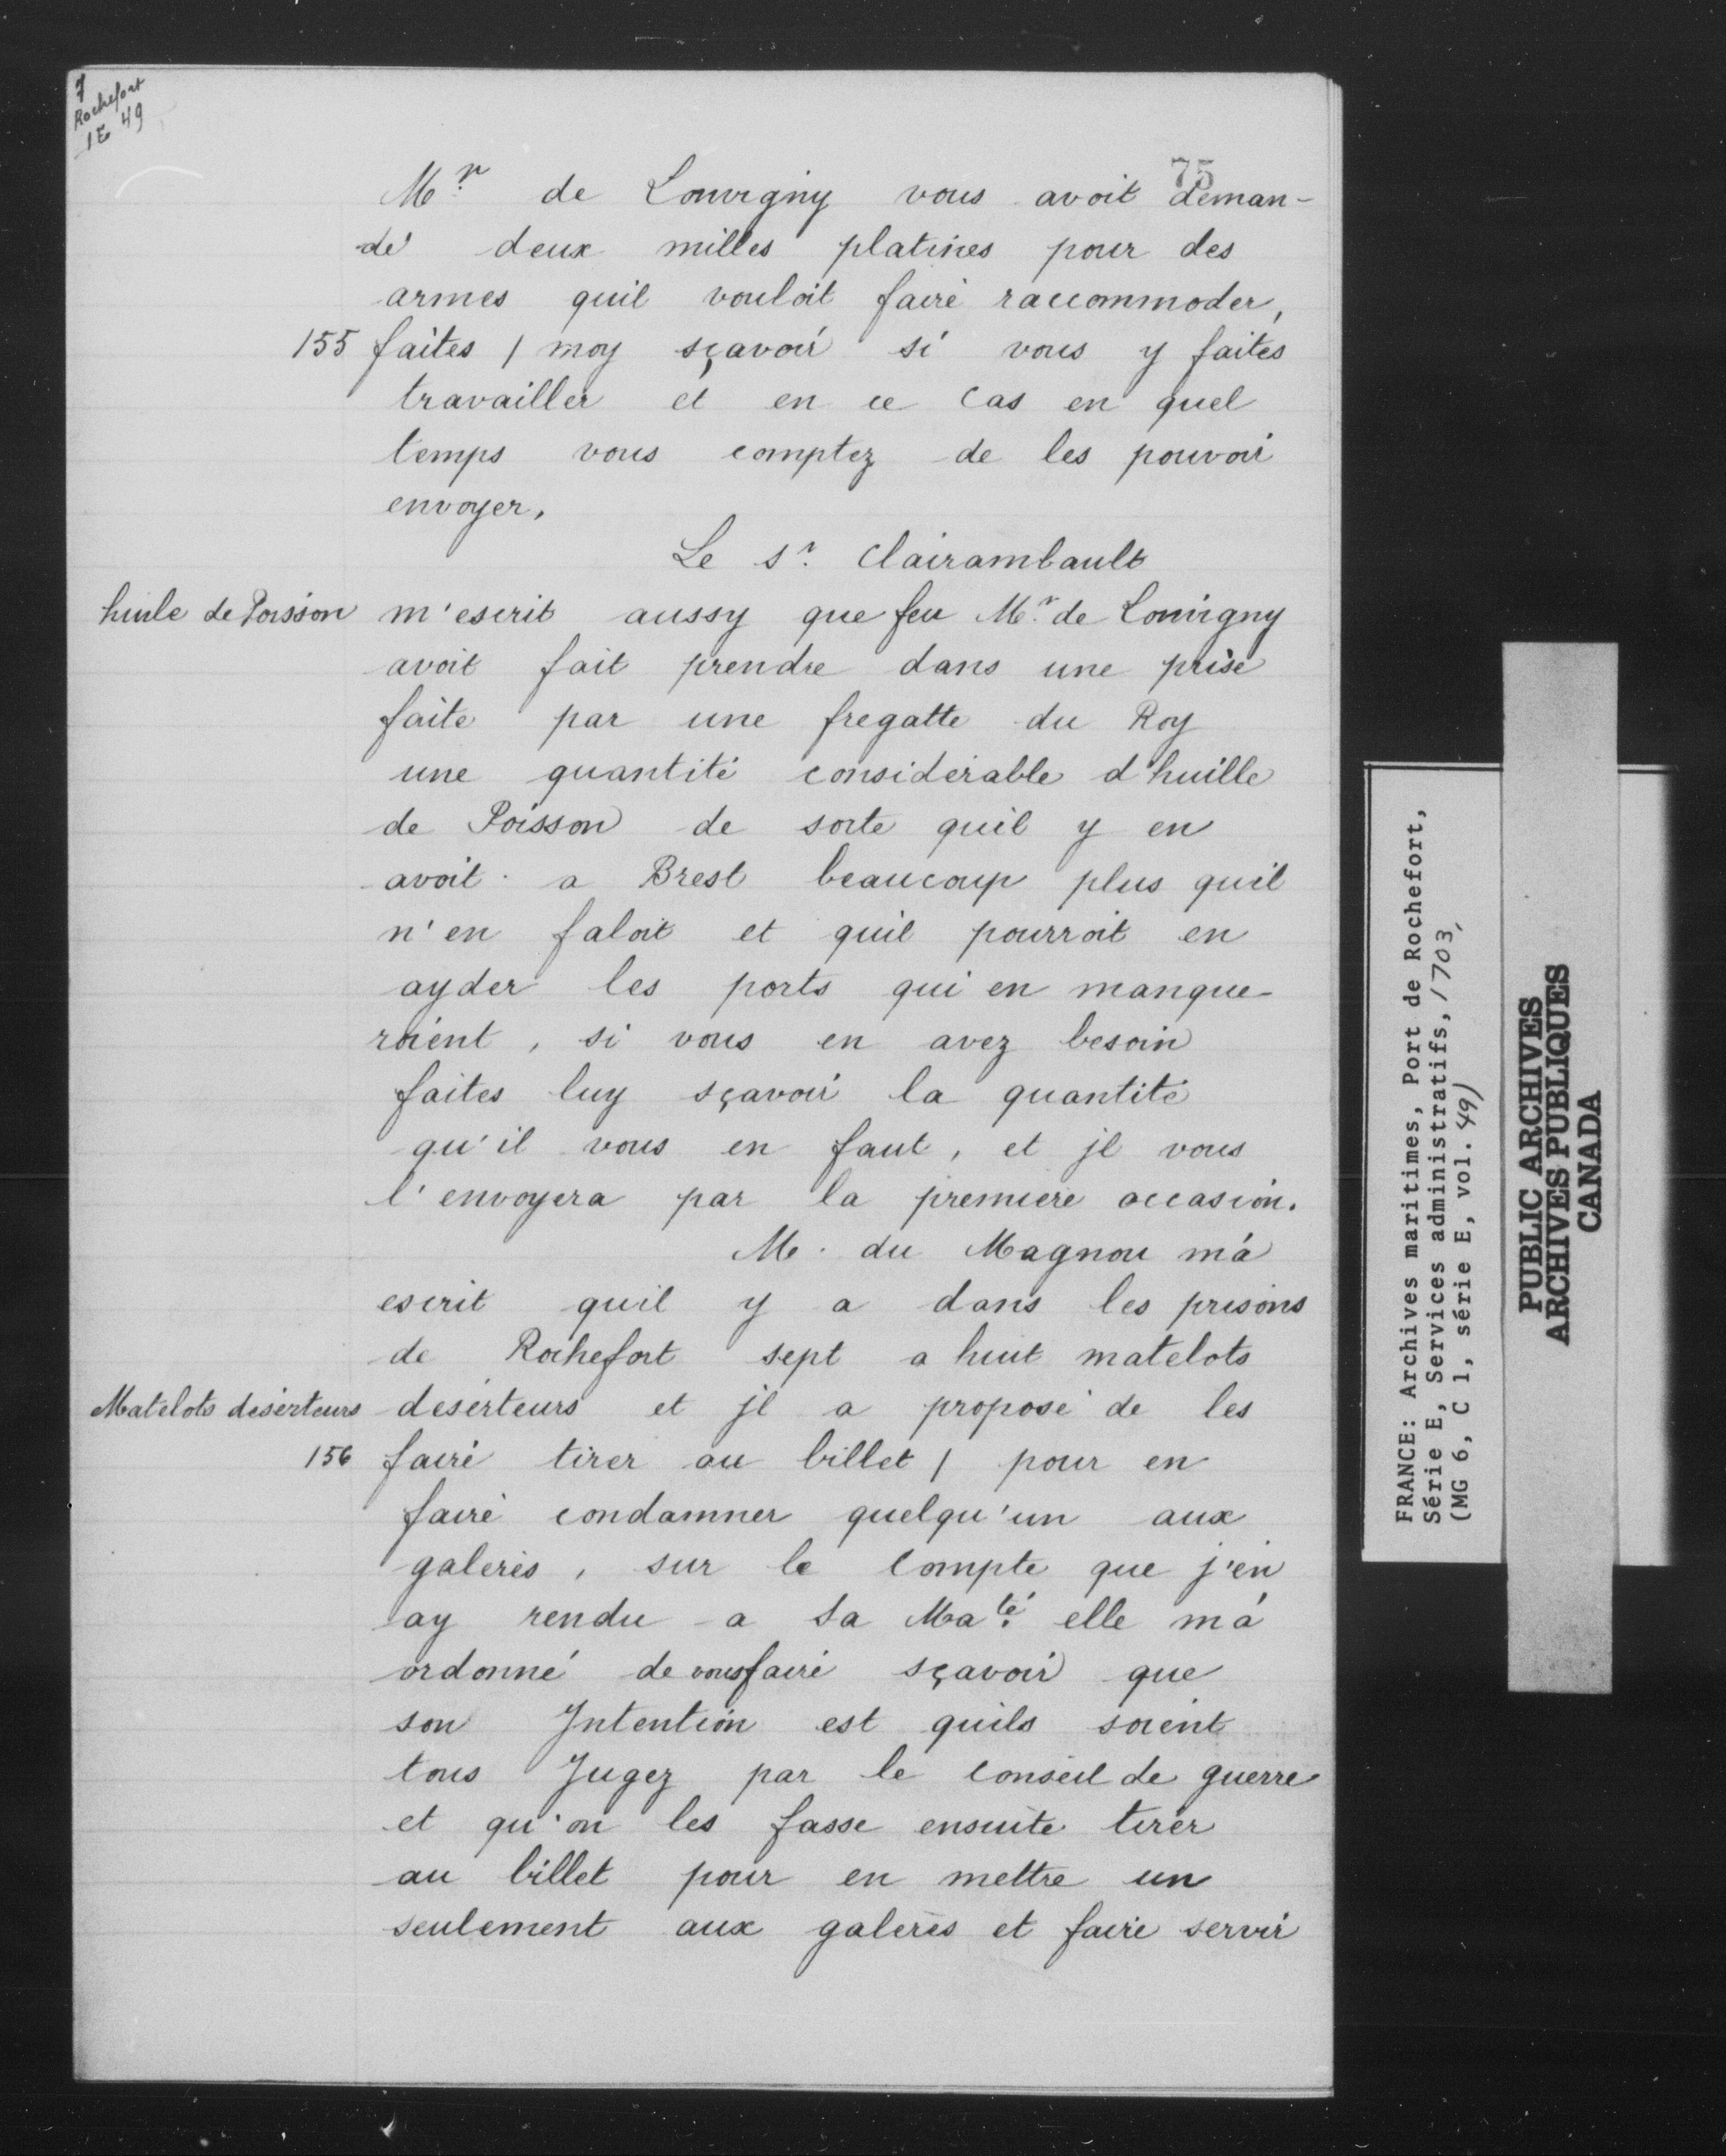 7
Rochefort
1E 49
75
Mr. de Louvigny vous avoit deman-
dé deux milles platines pour des
armes quil vouloit faire raccommoder,
155 faites / moy sçavoir si vous y faites
travailler et en ce cas en quel
temps vous comptez de les pouvoir
envoyer,
Le sr. Clairambault
huile de Poisson m'escrit aussy que feu Mr. de Louvigny
avoit fait prendre dans une prise
faite par une fregatte du Roy
une quantité considérable d'huille
de Poisson de sorte quil y en
avoit a Brest beaucoup plus quil
n'en faloit et quil pourroit en
ayder les ports qui en manque-
roient, si vous en avez besoin
faites luy sçavoir la quantité
qu'il vous en faut, et jl vous
l'envoyera par la premiere occasion.
M. du Magnou m'a
escrit quil y a dans les prisons
de Rochefort sept a huit matelots
Matelots déserteurs deserteurs et jl a proposé de les
156 faire tirer au billet / pour en
faire condamner quelqu'un aux
galeres, sur le compte que j'en
ay rendu a sa Maté. elle m'a
ordonné de vous faire sçavoir que
son Intention est quils soient
tous Jugez par le Conseil de guerre
et qu'on les fasse ensuite tirer
au billet pour en mettre un
seulement aux galeres et faire servir
FRANCE: Archives maritimes, Port de Rochefort,
Série E, Services administratifs, 1703,
(MG 6, C 1, série E, vol. 49)
PUBLIC ARCHIVES
ARCHIVES PUBLIQUES
CANADA